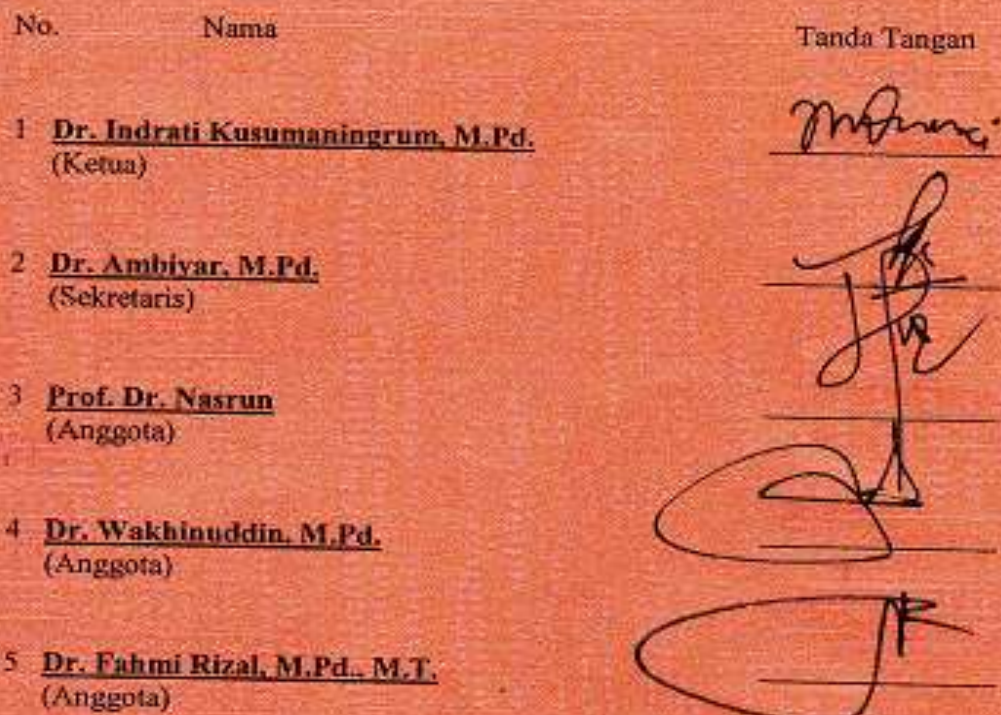 No. Nama Tanda Tangan
1 Dr. Indrati Kusumaningrum, M.Pd.
(Ketua)
2 Dr. Ambiyar, M.Pd.
(Sekretaris)
3 Prof. Dr. Nasrun
(Anggota)
4 Dr. Wakhinuddin, M.Pd.
(Anggota)
5 Dr. Fahmi Rizal, M.Pd., M.T.
(Anggota)